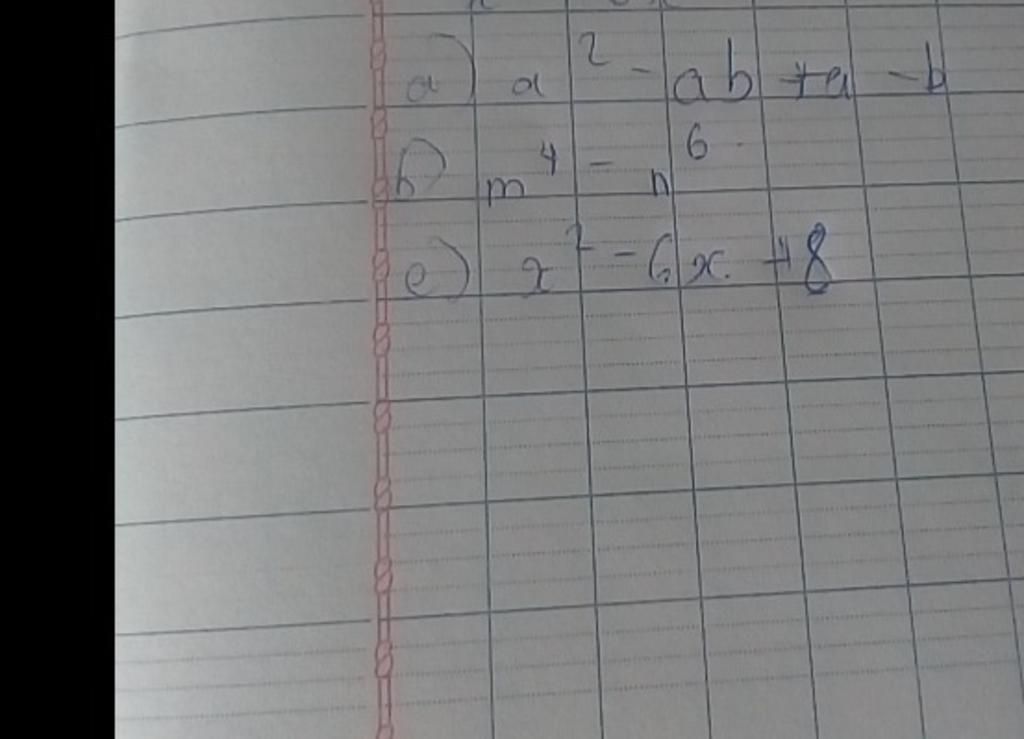 a) a² - ab + a - b
b) m⁴ - n⁶
c) x² - 6x + 8